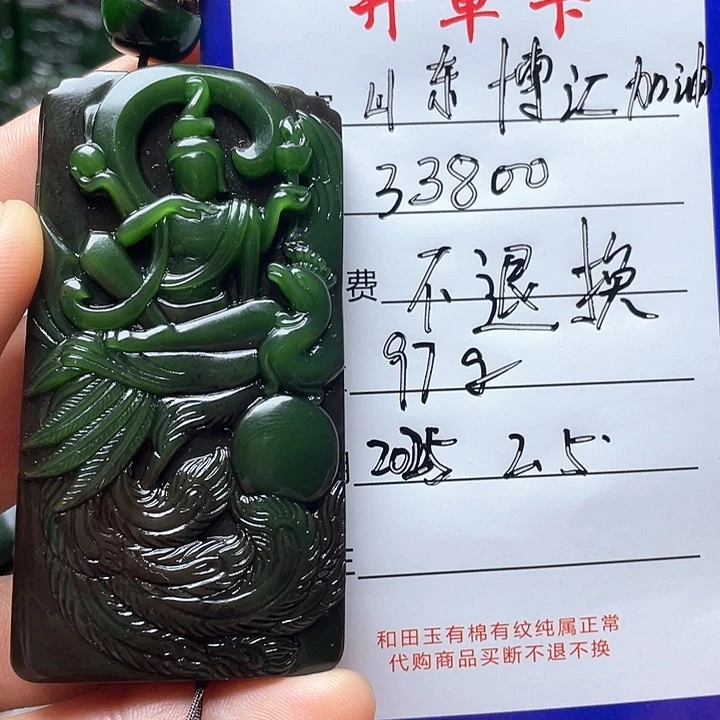 开单卡
山东博汇加油
33800
费 不退换
97g
2025 2.5.
和田玉有棉有纹纯属正常
代购商品买断不退不换